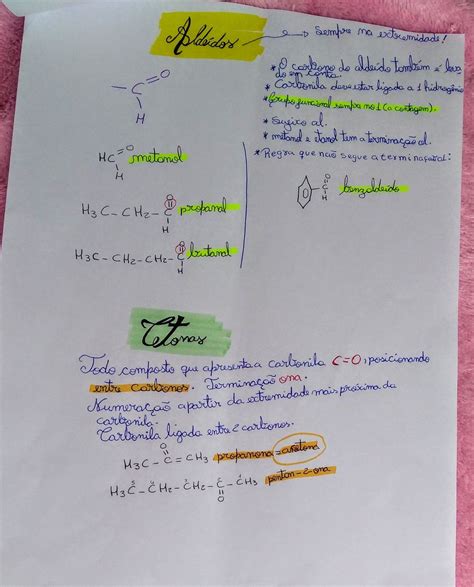 Aldeídos → Sempre na extremidade!
* O carbono do aldeído também é levado em conta.
* Carbonila deve estar ligada a 1 hidrogênio
* Grupo funcional sempre no 1 (a contagem).
* Sufixo al.
* metanol e etanol tem a terminação al.
* Regra que não segue a terminação al:
C=O
H
HC=O metanol
H
H3C-CH2-C=O propanal
H
H3C-CH2-CH2-C=O butanal
H
C=O benzaldeído
H
Cetonas
Todo composto que apresenta a carbonila C=O, posicionando
entre carbonos. Terminação ona.
Numeração a partir da extremidade mais próxima da
carbonila.
Carbonila ligada entre 2 carbonos.
O
H3C-C=CH3 propanona = acetona
H3C-CH2-CH2-C-CH3 pentan-2-ona
O